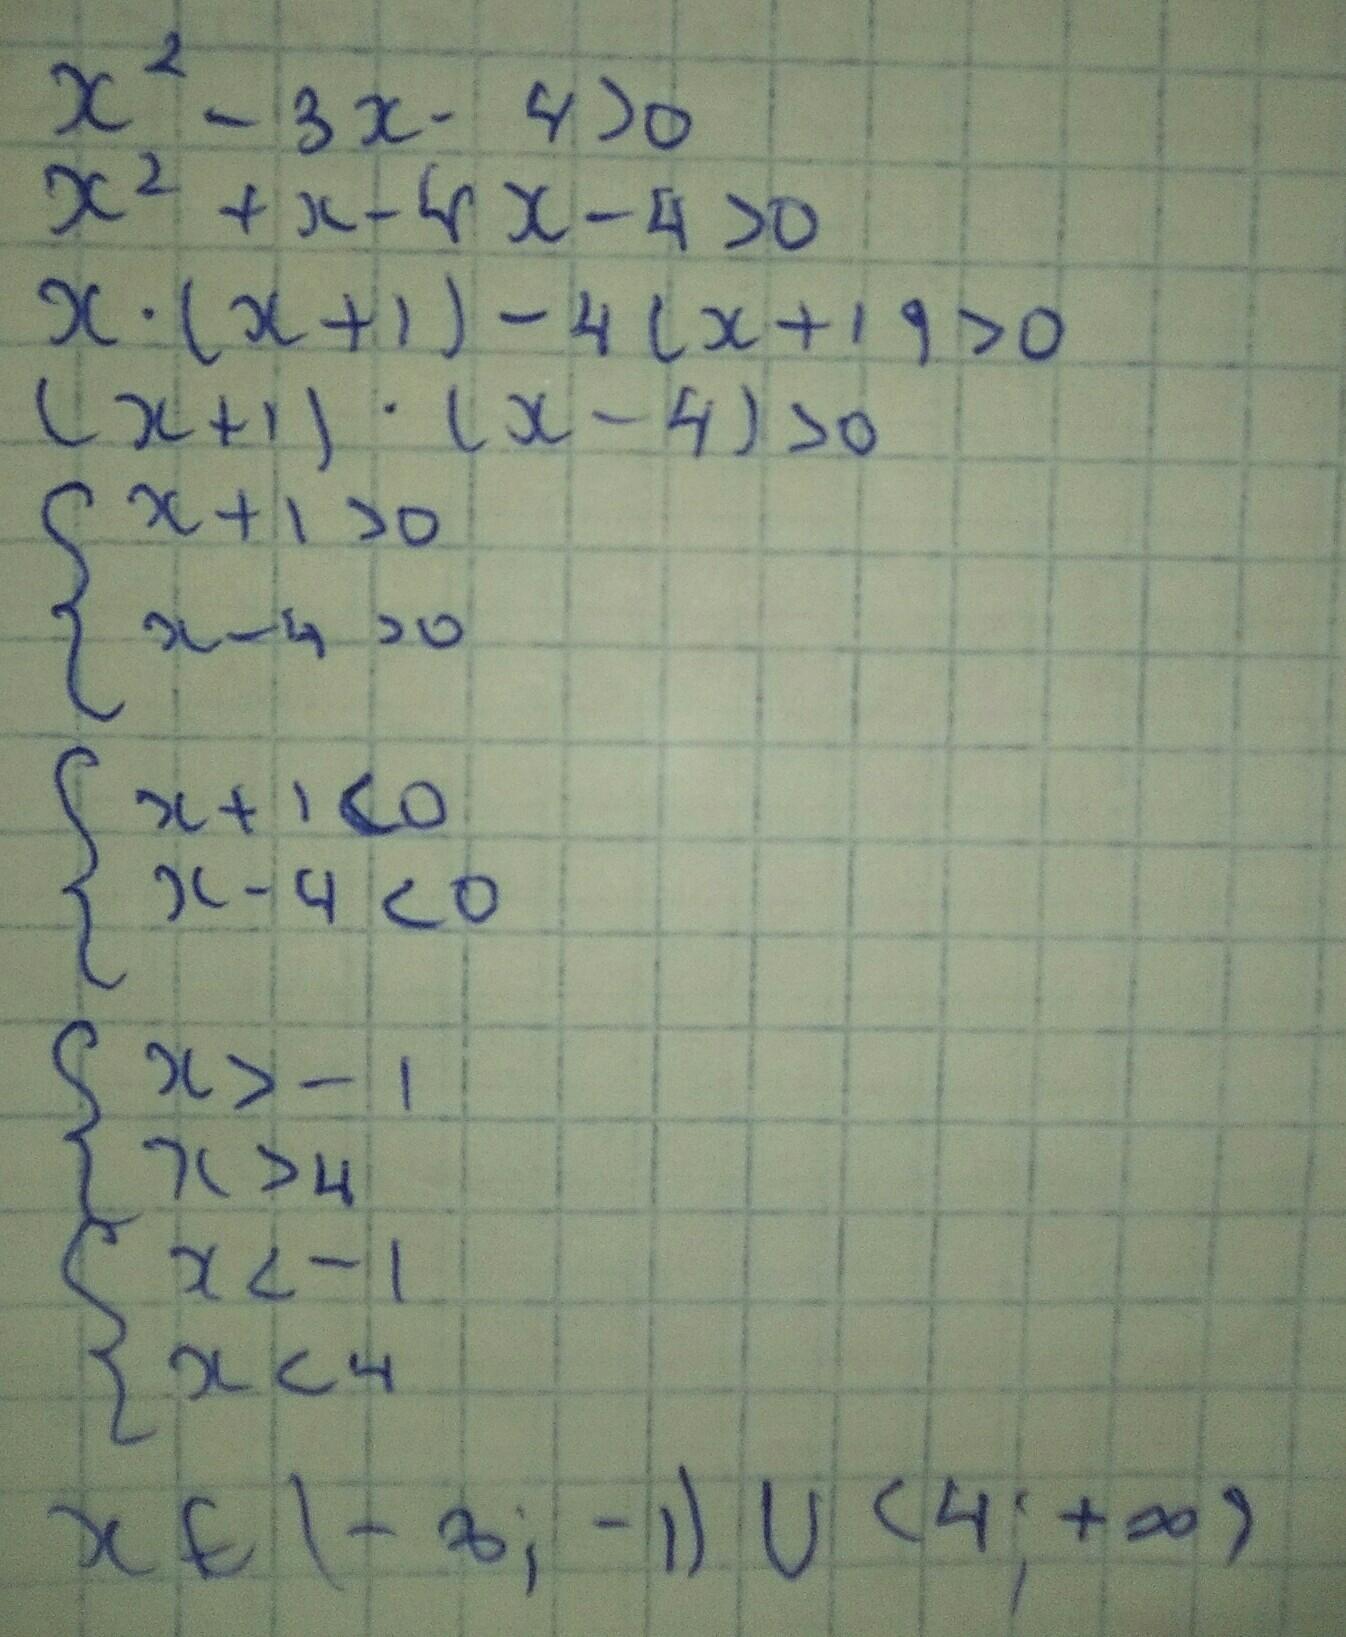 x² - 3x - 4>0
x² + x - 4x - 4>0
x·(x+1) - 4(x+1)>0
(x+1)·(x-4)>0
{ x+1>0
x-4>0
{ x+1<0
x-4<0
{ x>-1
x>4
{ x<-1
x<4
x ∈ (-∞; -1) ∪ (4; +∞)